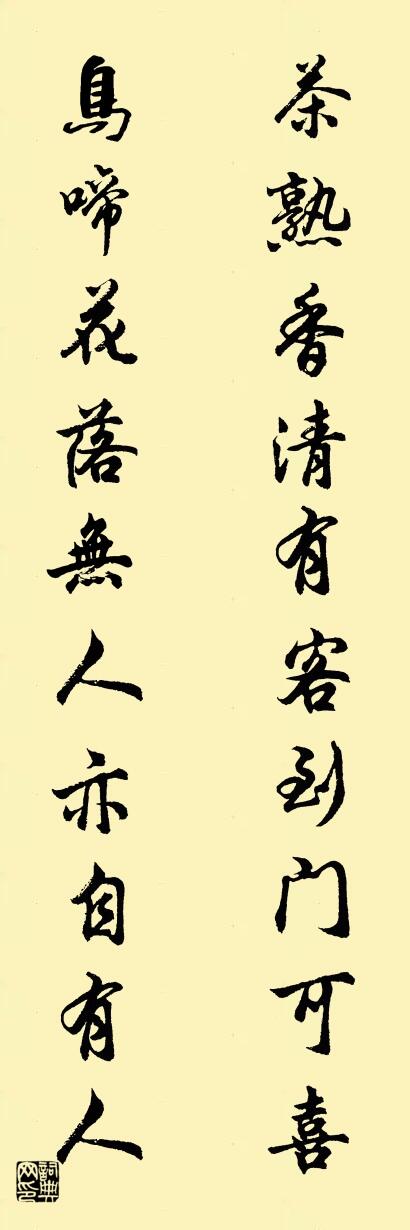 茶熟香清有客到门可喜
鳥啼花落無人亦自有人
詞典网印